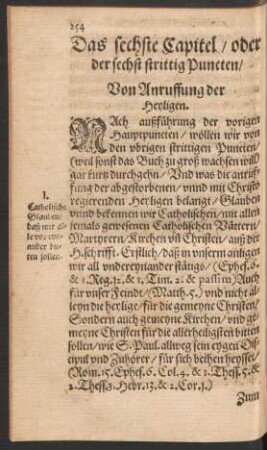 254
Das sechste Capitel / oder
der sechst strittig Puncten /
Von Anruffung der
Heyligen.
NAch außführung der vorigen
Hauptpuncten / wöllen wir von
den vbrigen strittigen Puncten /
(weil sonst das Buch zu groß wachsen will)
gar kurtz durchgehn / Vnd was die anruf-
fung der abgestorbenen / vnnd mit Christo
regierenden Heyligen belangt / Glauben
vnnd bekennen wir Catholischen / mit allen
jemals gewesenen Catholischen Vättern /
Martyrern / Kirchen vñ Christen / auß der
H. schrifft. Erstlich / daß in vnserm anligen
wir all vndereynander stätigs / (Ephes. 6.
& 1. Reg. 12. & 1. Tim. 2. & passim) Auch
für vnser Feindt / (Matth. 5.) vnd nicht al-
leyn die heylige / für die gemeyne Christen /
Sondern auch gemeyne Kirchen / vnd ge-
meyne Christen für die allerheiligsten bitten
sollen / wie S. Paul. allweg sein eygen Di-
scipul vnd Zuhörer / für sich betten heysset /
(Rom. 15. Ephes. 6. Col. 4. & 1. Thess. 5. &
2. Thess. 3. Hebr. 13. & 2. Cor. 1.)
Zum
I.
Catholische
Glauben /
daß wir al-
le vor eyn-
ander bit-
ten sollen.